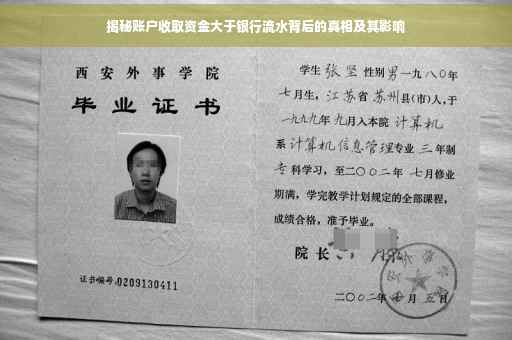 揭秘账户收取资金大于银行流水背后的真相及其影响
西安外事学院
毕业证书
证书编号:0209130411
学生 张坚 性别 男 一九八〇年
七月生,江苏省 苏州县(市)人,于
一九九九年 九月入本院 计算机
系 计算机信息管理专业 三 年制
专科学习,至二〇〇二年 七月修业
期满,学完教学计划规定的全部课程,
成绩合格,准予毕业。
院长
二〇〇二年 月 五日